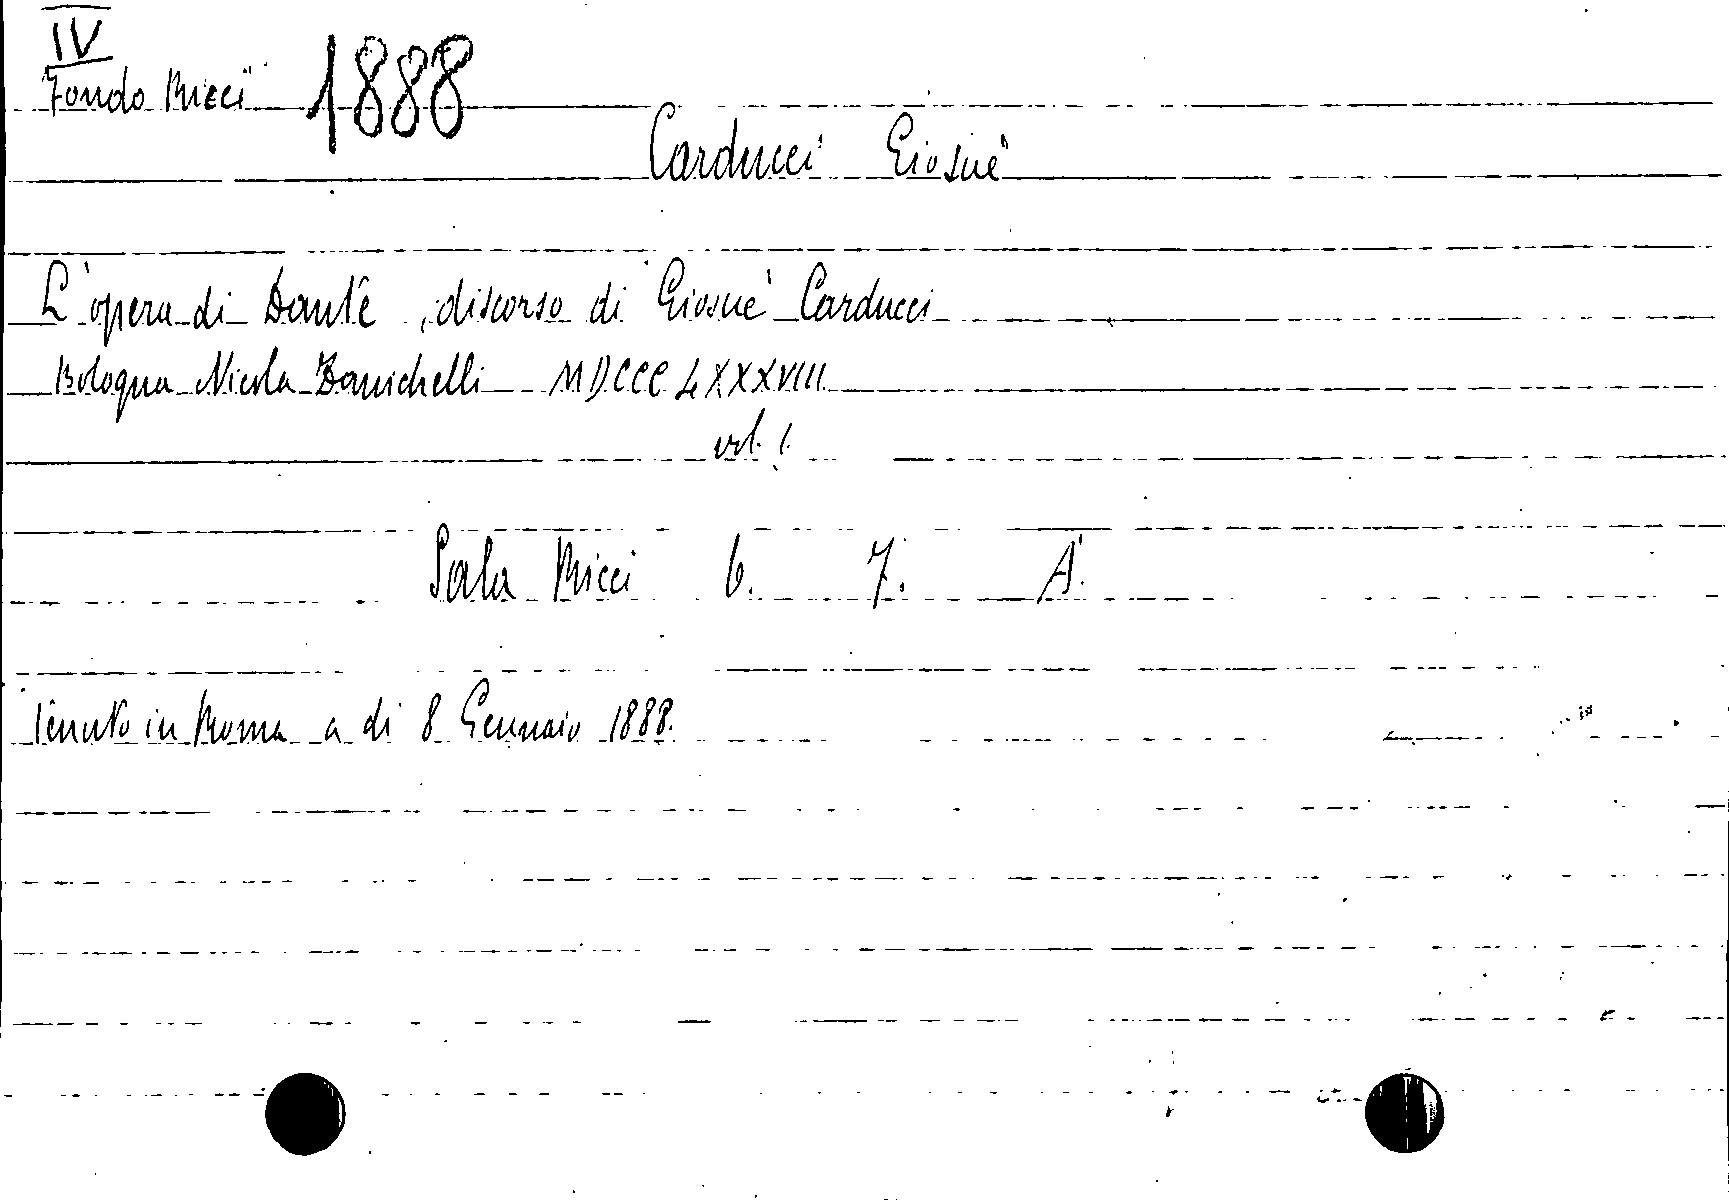 IV
Fondo Ricci 1888
Carducci Giosuè
L'opera di Dante, discorso di Giosuè Carducci
Bologna Nicola Zanichelli MDCCCLXXXVIII
vol. 1.
Sala Ricci 6. 7. A.
Tenuto in Roma a di 8 Gennaio 1888.